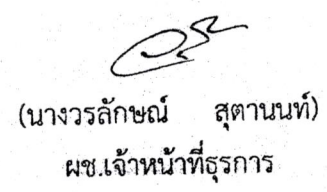 (นางวรลักษณ์ สุตานนท์)
ผช.เจ้าหน้าที่ธุรการ